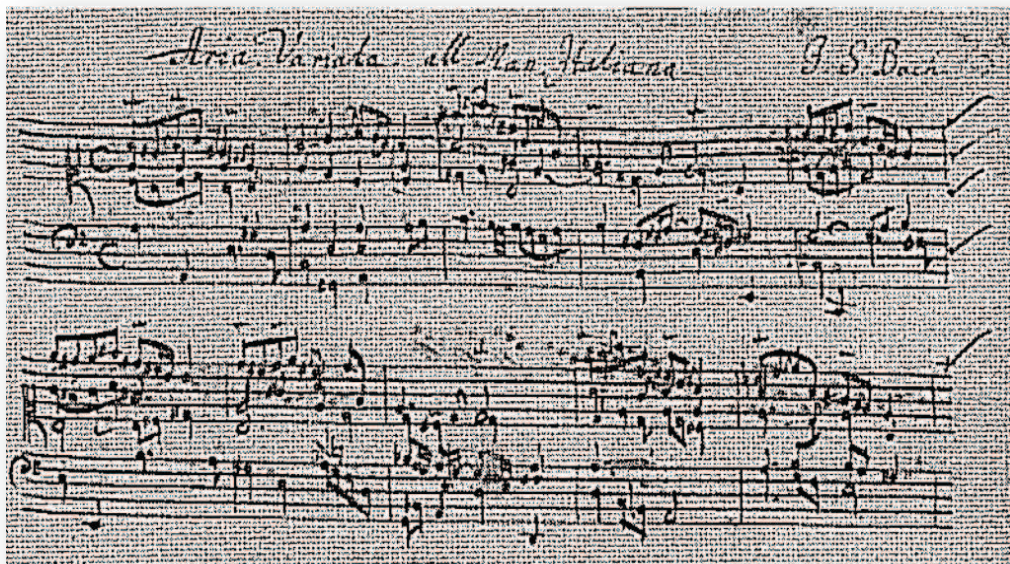 Aria Variata. all Man. Italiana J. S. Bach.